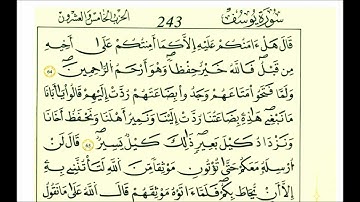 سُورَةُ يُوسُفَ 243 الحِزْبُ الخَامِسُ وَالعِشْرُونَ
قَالَ هَلْ ءَامَنُكُمْ عَلَيْهِ إِلَّا كَمَا أَمِنتُكُمْ عَلَىٰ أَخِيهِ
مِن قَبْلُ فَاللَّهُ خَيْرٌ حِفْظًا وَهُوَ أَرْحَمُ الرَّٰحِمِينَ ٦٤
وَلَمَّا فَتَحُوا مَتَٰعَهُمْ وَجَدُوا بِضَٰعَتَهُمْ رُدَّتْ إِلَيْهِمْ قَالُوا يَٰأَبَانَا
مَا نَبْغِي هَٰذِهِ بِضَٰعَتُنَا رُدَّتْ إِلَيْنَا وَنَمِيرُ أَهْلَنَا وَنَحْفَظُ أَخَانَا
وَنَزْدَادُ كَيْلَ بَعِيرٍ ذَٰلِكَ كَيْلٌ يَسِيرٌ ٦٥ قَالَ لَنْ
أُرْسِلَهُ مَعَكُمْ حَتَّىٰ تُؤْتُونِ مَوْثِقًا مِّنَ اللَّهِ لَتَأْتُنَّنِي بِهِ
إِلَّا أَنْ يُّحَاطَ بِكُمْ فَلَمَّا ءَاتَوْهُ مَوْثِقَهُمْ قَالَ اللَّهُ عَلَىٰ مَا نَقُولُ